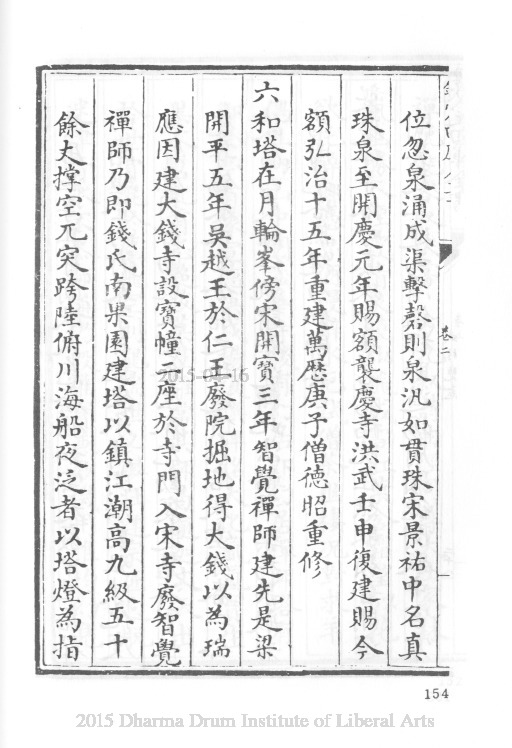 位忽泉涌成渠擊磬則泉汎如貫珠宋景祐中名真
珠泉至開慶元年賜額襲慶寺洪武壬申復建賜今
額弘治十五年重建萬歷庚子僧德昭重修
六和塔在月輪峯傍宋開寶三年智覺禪師建先是梁
開平五年吳越王於仁王廢院掘地得大錢以為瑞
應因建大錢寺設寶幢二座於寺門入宋寺廢智覺
禪師乃即錢氏南果園建塔以鎮江潮高九級五十
餘丈撑空兀突跨陸俯川海船夜泛者以塔燈為指
卷二
154
2015 Dharma Drum Institute of Liberal Arts